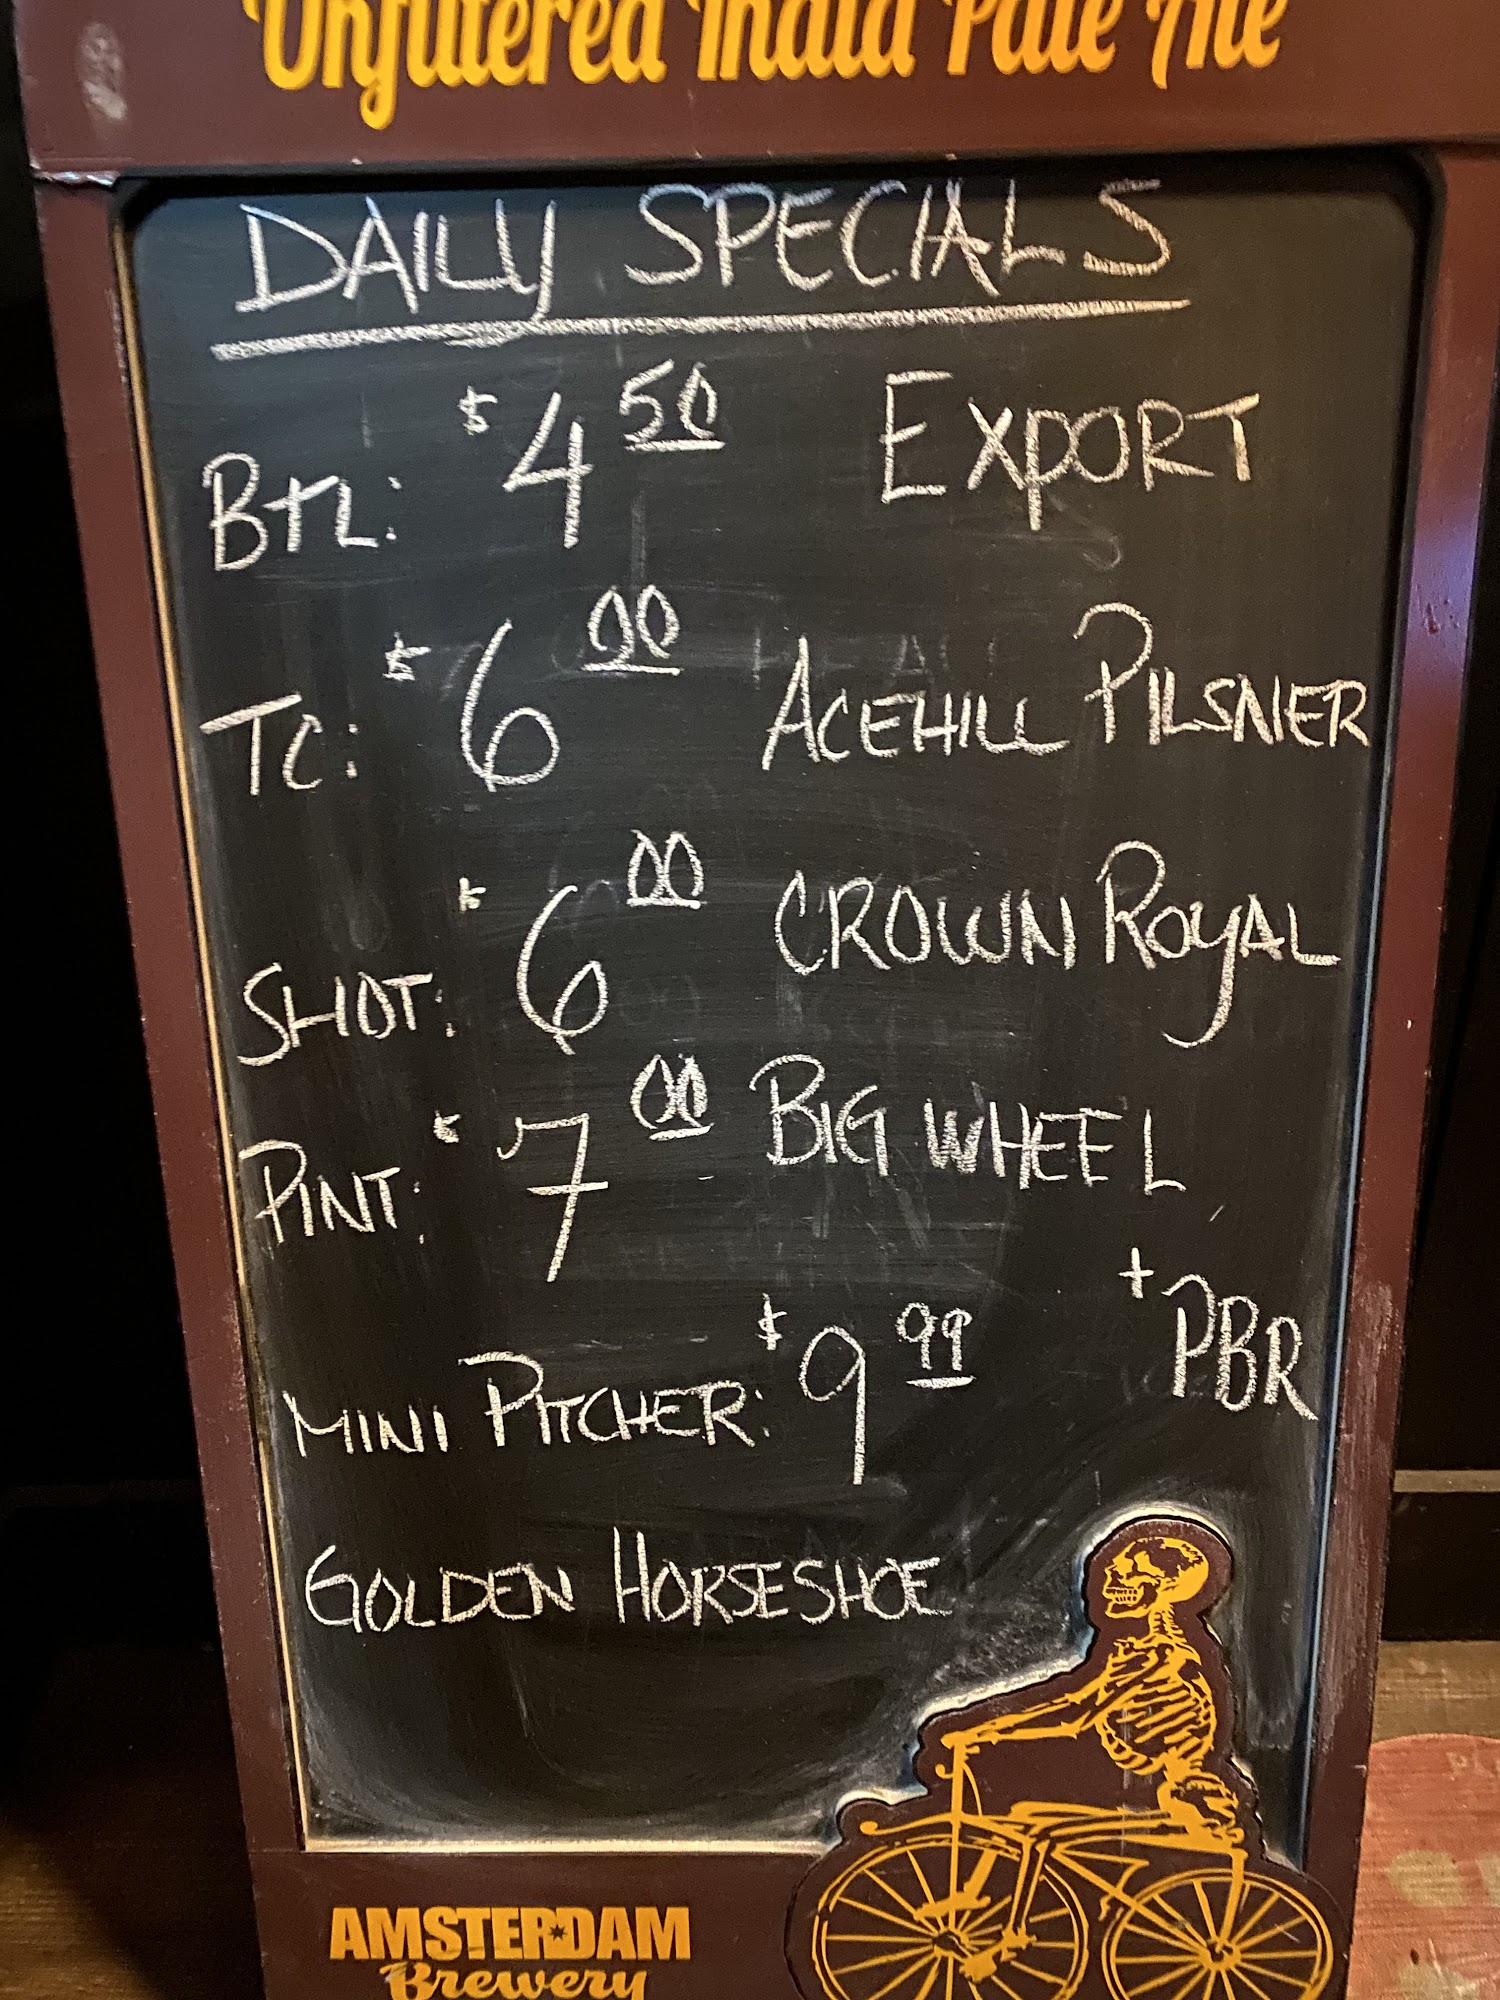 Unfiltered India Pale Ale
DAILY SPECIALS
BTL: $4 50 EXPORT
TC: $6 00 ACEHILL PILSNER
SHOT: $6 00 CROWN ROYAL
PINT: $7 00 BIG WHEEL
+ PBR
MINI PITCHER: $9 99
GOLDEN HORSESHOE
AMSTERDAM
Brewery